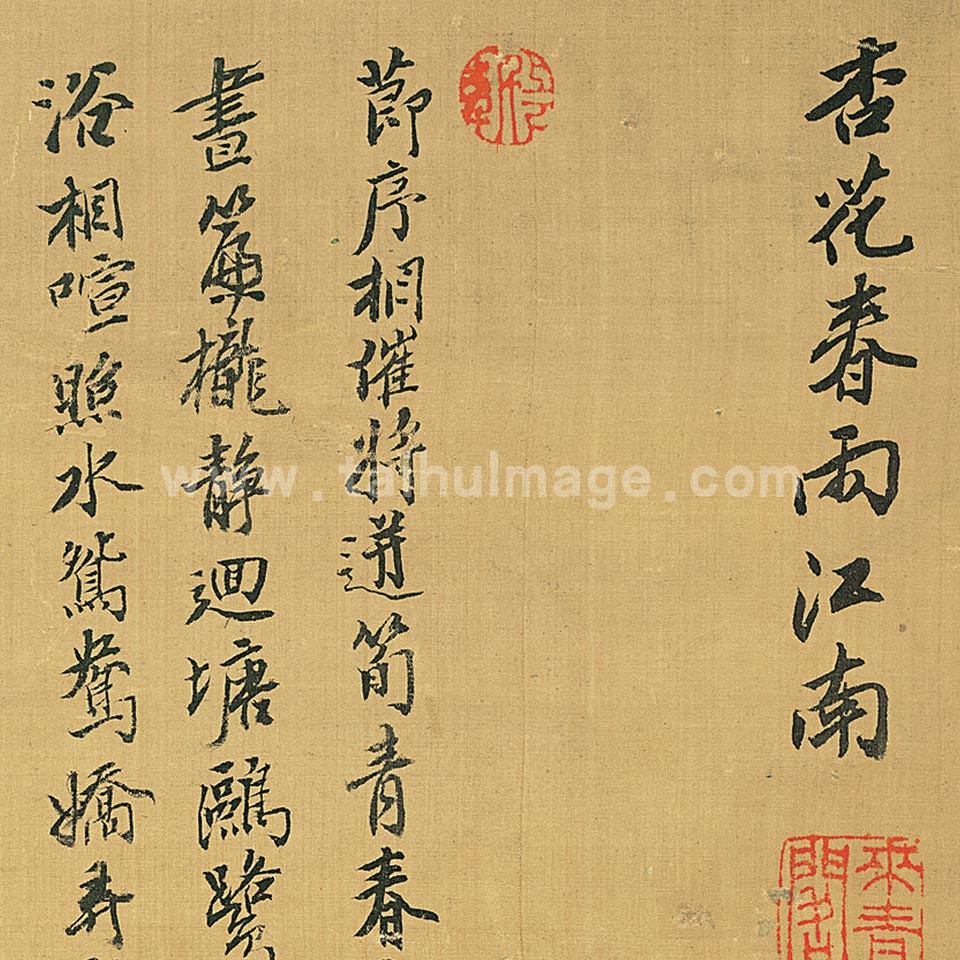 杏花春雨江南
節序相催將迸筍青春
晝簾櫳靜迴塘鷗鷺
浴相喧照水鴛鴦嬌弄
www.taihuImage.com